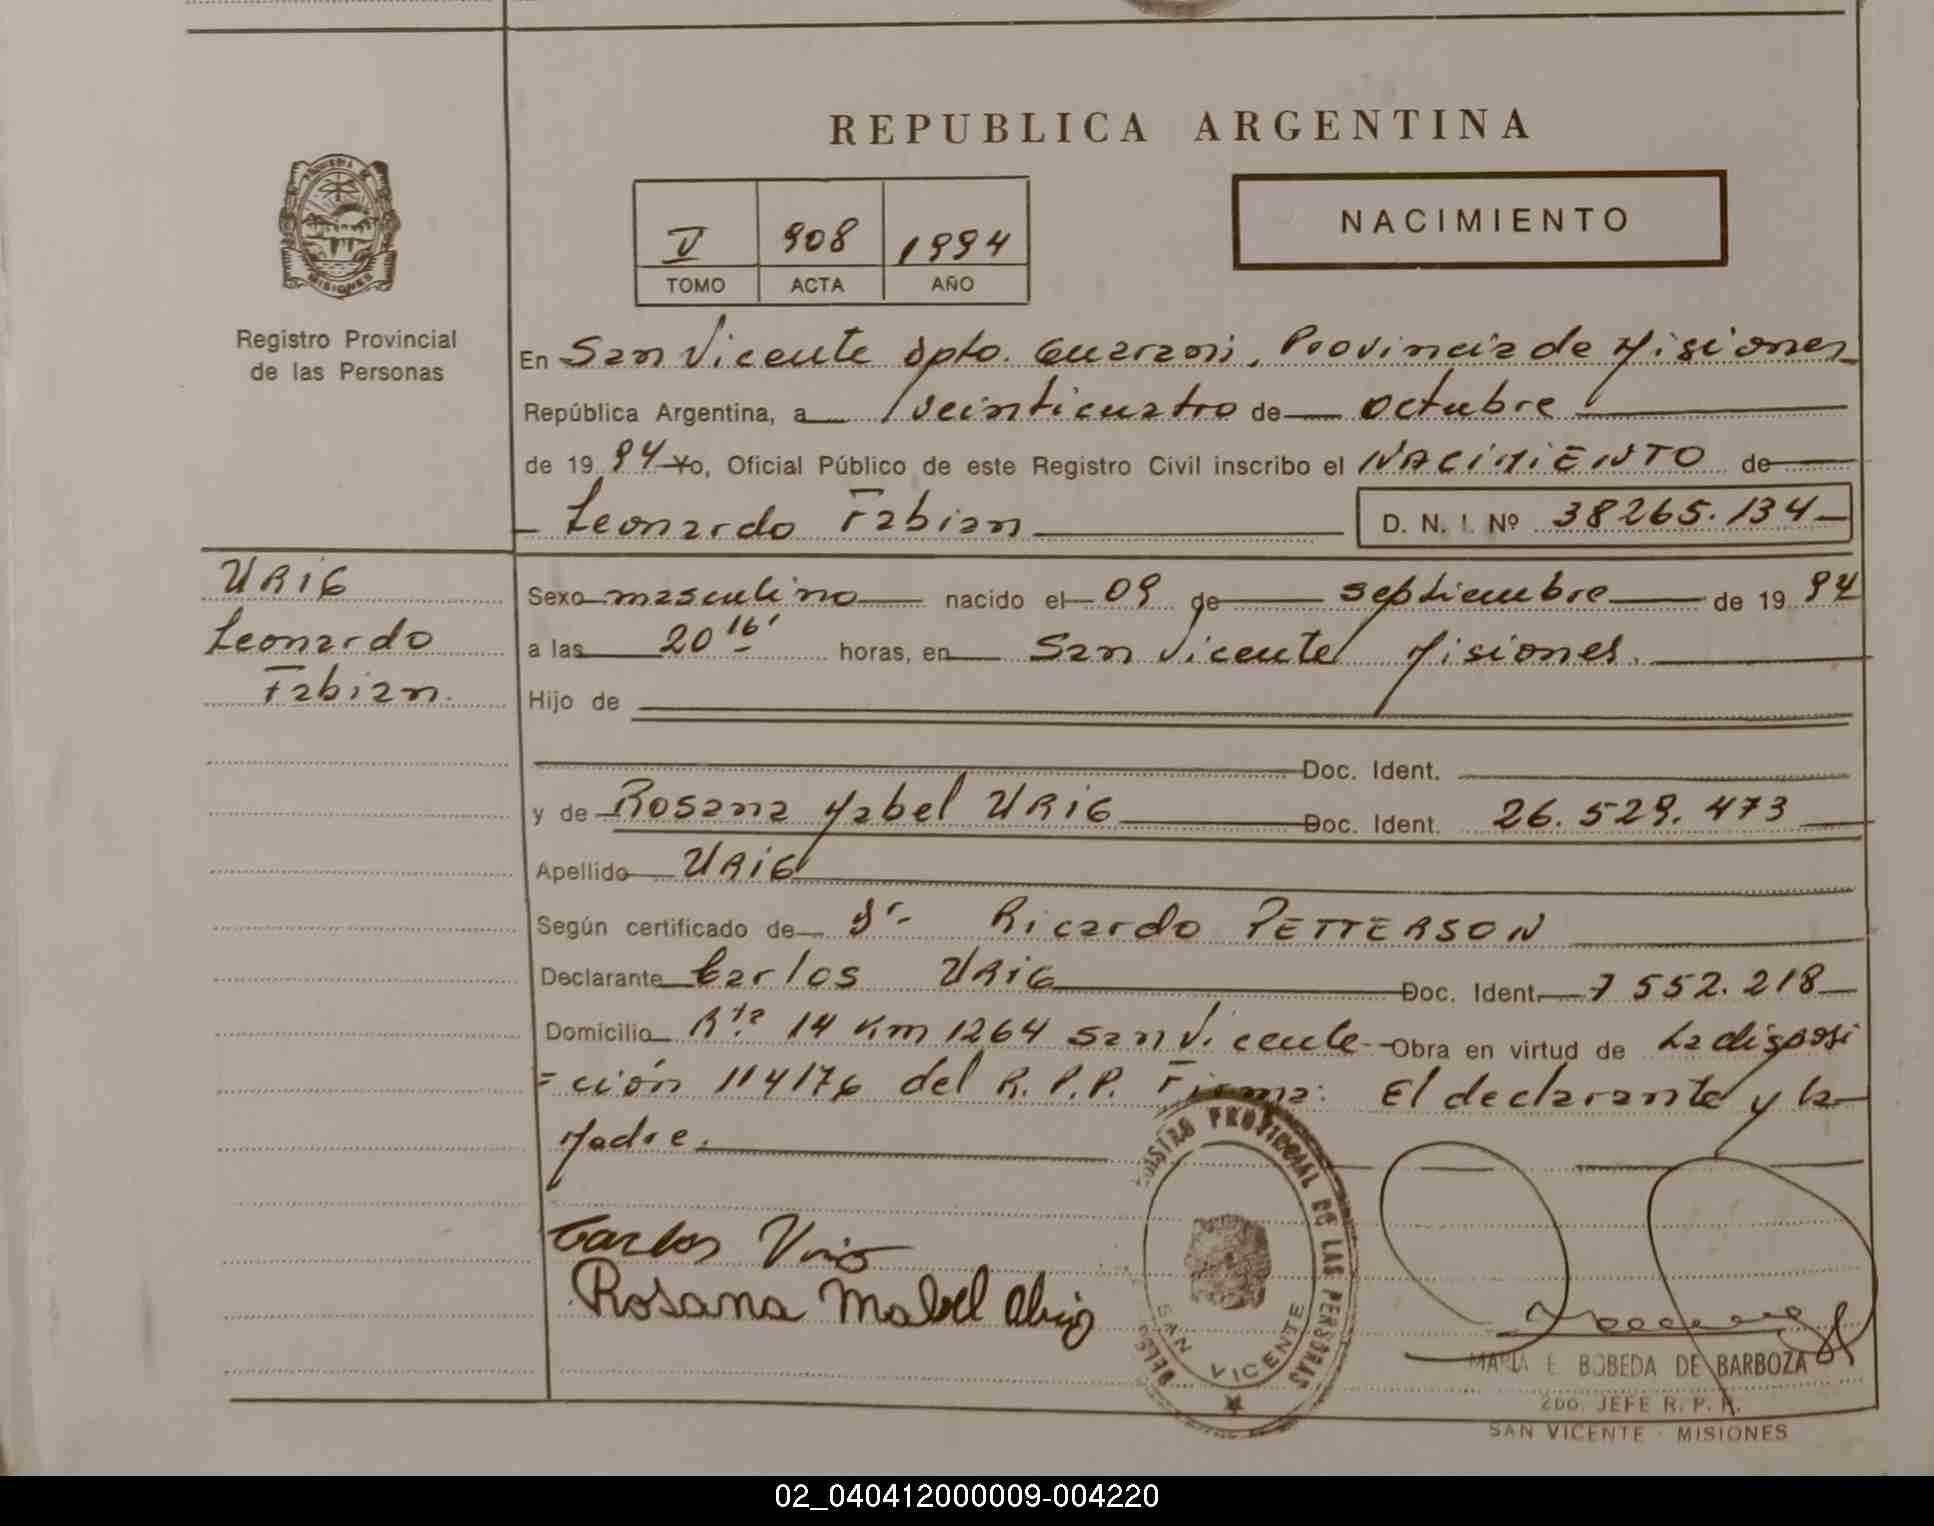 REPUBLICA ARGENTINA
NACIMIENTO
V 908 1994
TOMO ACTA AÑO
MISIONES
Registro Provincial
de las Personas
En San Vicente Dpto. Guarani, Provincia de Misiones
República Argentina, a veinticuatro de octubre
de 19 94 Yo, Oficial Público de este Registro Civil inscribo el NACIMIENTO de
Leonardo Fabian D. N. I. Nº 38265.134
URIG
Leonardo
Fabian.
Sexo masculino nacido el 09 de septiembre de 19 94
a las 20 16' horas, en San Vicente Misiones.
Hijo de
Doc. Ident.
y de Rosana Mabel URIG Doc. Ident. 26.529.473
Apellido URIG
Según certificado de Dr. Ricardo PETTERSON
Declarante Carlos URIG Doc. Ident. 7 552.218
Domicilio Rta. 14 Km 1264 San Vicente Obra en virtud de La disposi
=ción 114176 del R.P.P. Firma: El declarante y la
Madre.
Carlos Urig
Rosana Mabel Urig
REGISTRO PROVINCIAL DE LAS PERSONAS
SAN VICENTE
MARIA E. BOBEDA DE BARBOZA
2DO. JEFE R. P. P.
SAN VICENTE - MISIONES
02_040412000009-004220